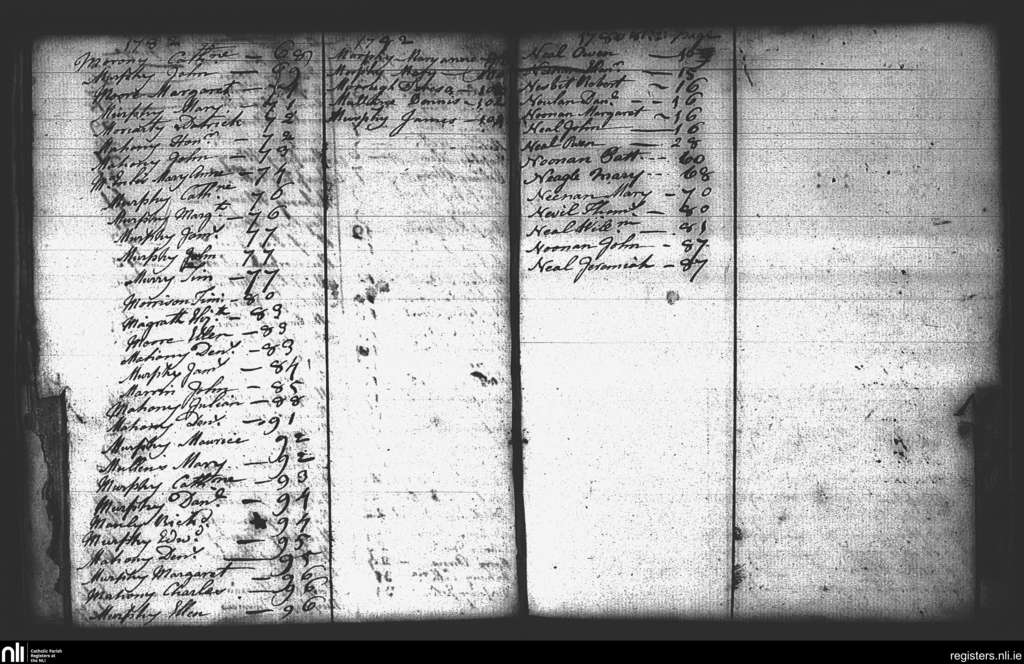 Morony Cathne - 68
Murphy John - 69
Moore Margaret - 71
Murphy Mary - 71
Moriarty Patrick 72
Mahony Honr 72
Mahony John - 73
Mary Anne - 74
Murphy Cathne 76
Murphy Margt - 76
Murphy Jams 77
Murphy John 77
Murry Tim - 77
Morrison Tim - 80
Magrath Elizth - 83
Moore Ellen - 83
Mahony Dens - 83
Murphy Jams - 84
John - 85
Mahony Julian - 88
Mahony Dens - 91
Murphy Maurice 92
Mullens Mary - 92
Murphy Cathne - 93
Murphy Danl - 94
Richd 94
Murphy Edwd - 95
Mahony Dens - 95
Murphy Margaret - 96
Mahony Charles - 96
Murphy Ellen - 96
1792
Murphy Maryanne
Murphy
Teresa
Mullens Dennis - 102
Murphy James
page
Neal Owen
15
Nesbit Robert - 16
Noulan Danl - 16
Noonan Margaret - 16
Neal John - 16
Neal Owen - 28
Noonan Batt - 60
Neagle Mary - 68
Neenan Mary - 70
Nevil Thoms - 80
Neal Willm - 81
Noonan John - 87
Neal Jeremiah - 87
nli
Catholic Parish
Registers at
the NLI
registers.nli.ie